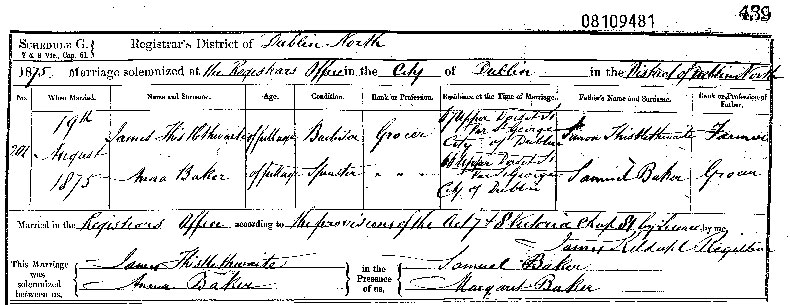 439
08109481
SCHEDULE G.
7 & 8 Vic., Cap. 81.
Registrar's District of Dublin North
1875. Marriage solemnized at the Registrars Office in the City of Dublin in the District of Dublin North
No. When Married. Name and Surname. Age. Condition. Rank or Profession. Residence at the Time of Marriage. Father's Name and Surname. Rank or Profession of Father.
201 19th August 1875
James Thistlethwaite of full age Bachelor Grocer 67 Upper Dorset St Par St George City of Dublin Thistlethwaite Farmer
Anna Baker of full age Spinster " " Upper Dorset St Par St George City of Dublin Samuel Baker Grocer
Married in the Registrars Office according to the provisions of the Act 7 & 8 Victoria Chap 81 by License by me,
James Registrar
This Marriage was solemnized between us,
James Thistlethwaite
Anna Baker
in the Presence of us,
Samuel Baker
Margaret Baker